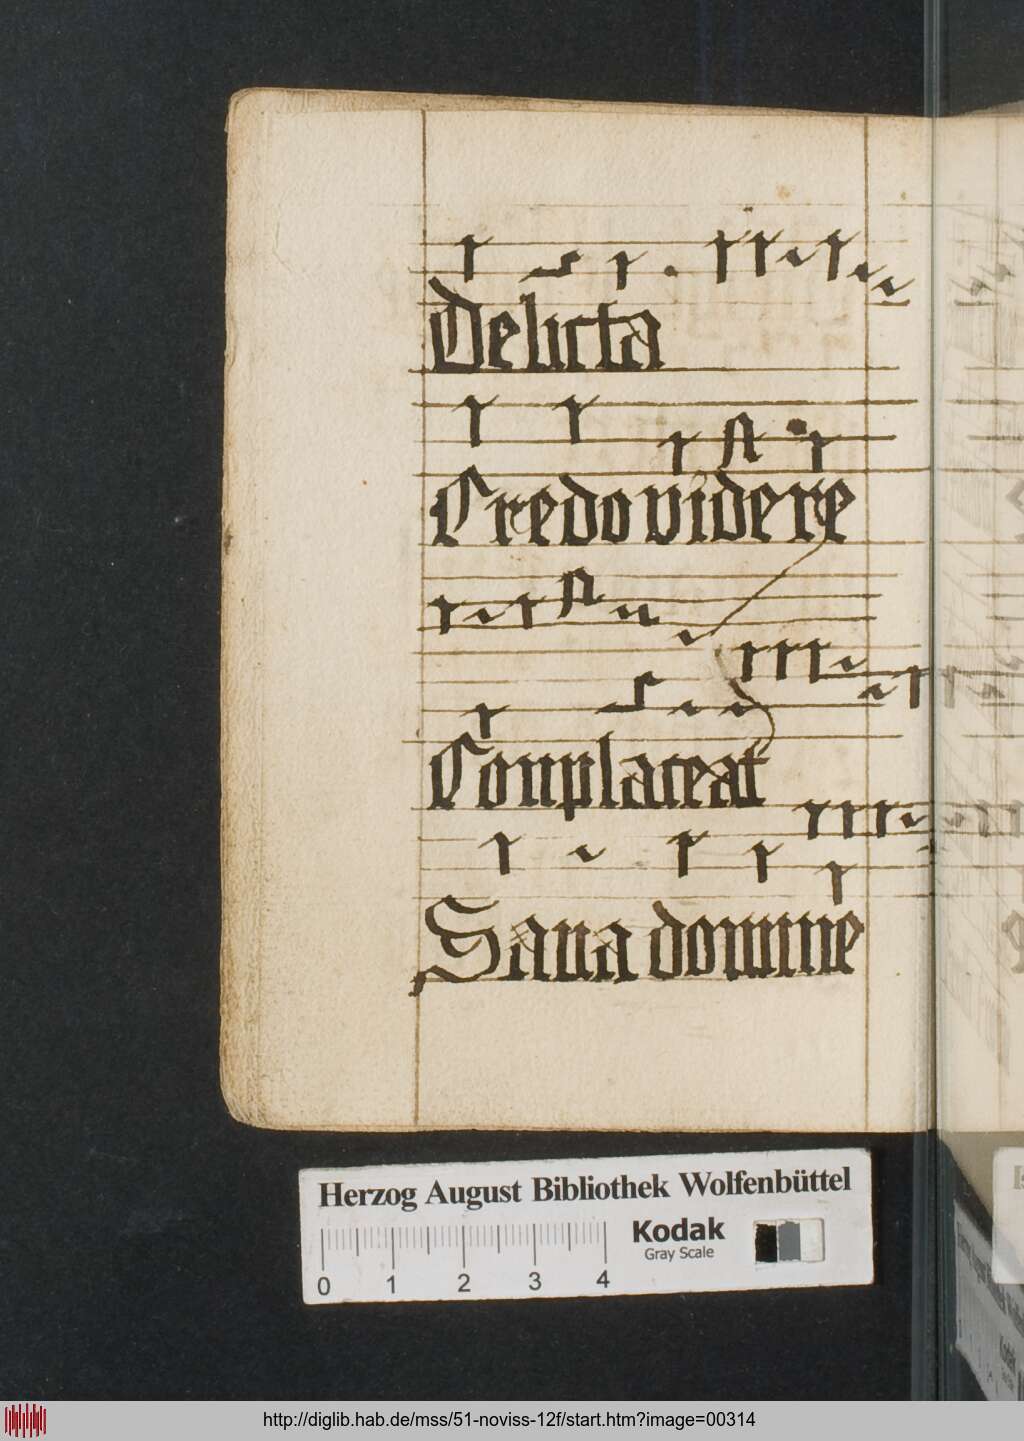 Delicta
Credo videre
Conplaceat
Sana domine
Herzog August Bibliothek Wolfenbüttel
Kodak
Gray Scale
0 1 2 3 4
http://diglib.hab.de/mss/51-noviss-12f/start.htm?image=00314